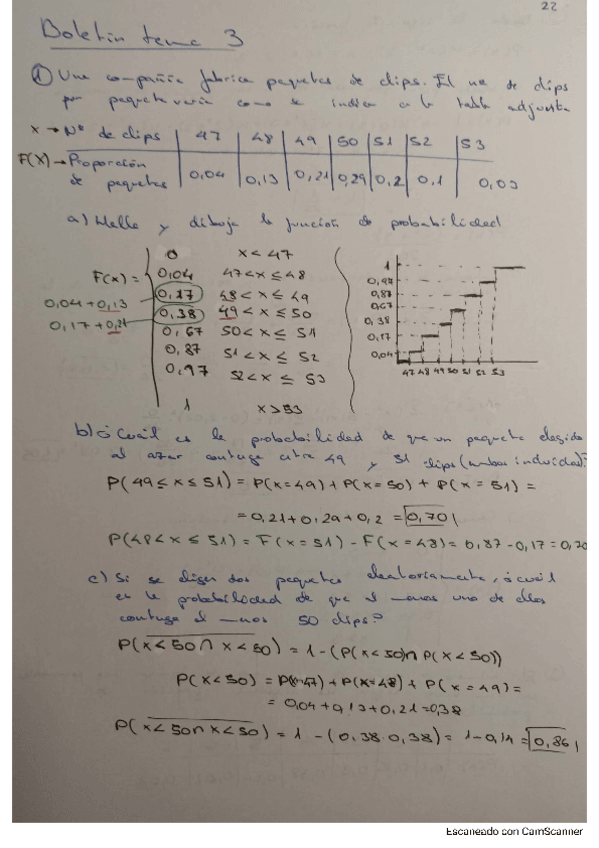 22
Boletín tema 3
① Una compañía fabrica paquetes de clips. El nº de clips
por paquete varía como se indica en la tabla adjunta
x → Nº de clips | 47 | 48 | 49 | 50 | 51 | 52 | 53
F(X) → Proporción de paquetes | 0,04 | 0,13 | 0,21 | 0,29 | 0,2 | 0,1 | 0,03
a) Halle y dibuja la función de probabilidad
F(x) =
0 x < 47
0,04 47 < x ≤ 48
0,17 48 < x ≤ 49
0,38 49 < x ≤ 50
0,67 50 < x ≤ 51
0,87 51 < x ≤ 52
0,97 52 < x ≤ 53
1 x > 53
0,04 + 0,13
0,17 + 0,21
1
0,97
0,87
0,67
0,38
0,17
0,04
47 48 49 50 51 52 53
b) ¿Cuál es la probabilidad de que un paquete elegido
al azar contenga entre 49 y 51 clips (ambos incluidos)?
P(49 ≤ x ≤ 51) = P(x = 49) + P(x = 50) + P(x = 51) =
= 0,21 + 0,29 + 0,2 = 0,70
P(48 < x ≤ 51) = F(x = 51) - F(x = 48) = 0,87 - 0,17 = 0,70
c) Si se eligen dos paquetes aleatoriamente, ¿cuál
es la probabilidad de que al menos uno de ellos
contenga al menos 50 clips?
P(x < 50 ∩ x < 50) = 1 - (P(x < 50) ∩ P(x < 50))
P(x < 50) = P(x = 47) + P(x = 48) + P(x = 49) =
= 0,04 + 0,13 + 0,21 = 0,38
P(x < 50 ∩ x < 50) = 1 - (0,38 · 0,38) = 1 - 0,14 = 0,86
Escaneado con CamScanner